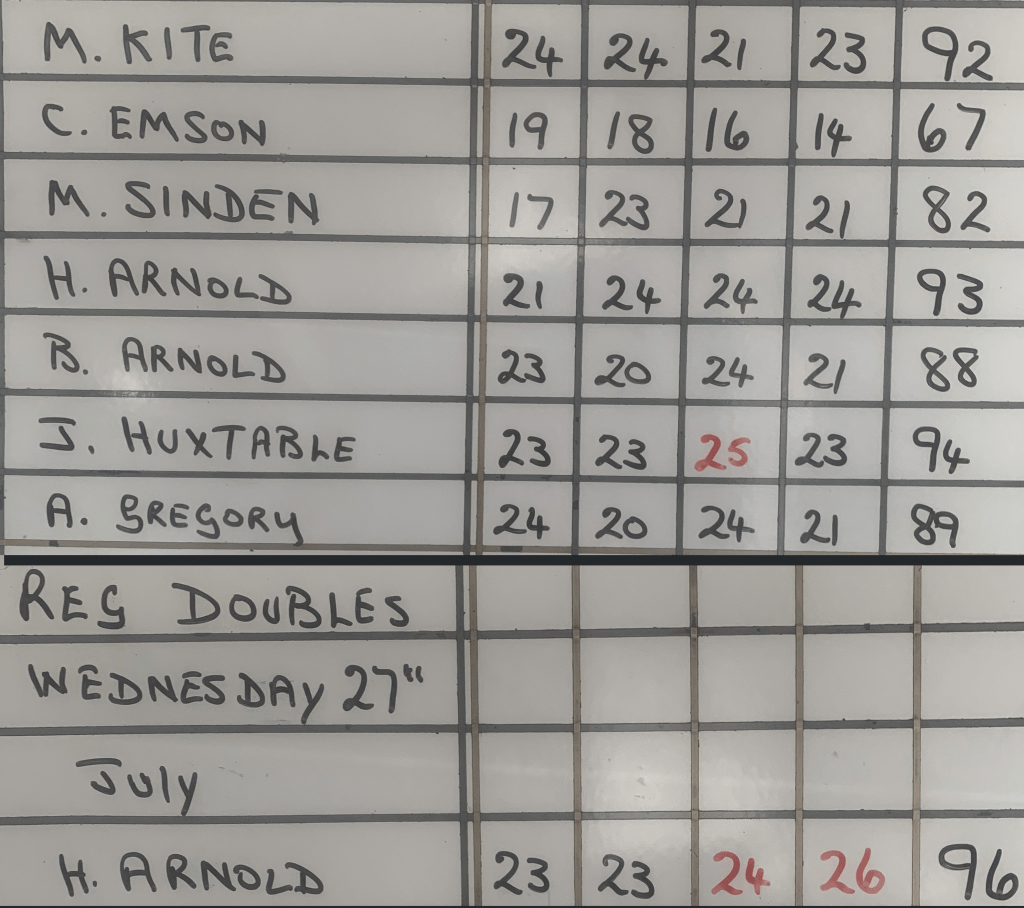 M. KITE 24 24 21 23 92
C. EMSON 19 18 16 14 67
M. SINDEN 17 23 21 21 82
H. ARNOLD 21 24 24 24 93
B. ARNOLD 23 20 24 21 88
J. HUXTABLE 23 23 25 23 94
A. GREGORY 24 20 24 21 89
REG DOUBLES
WEDNESDAY 27"
July
H. ARNOLD 23 23 24 26 96